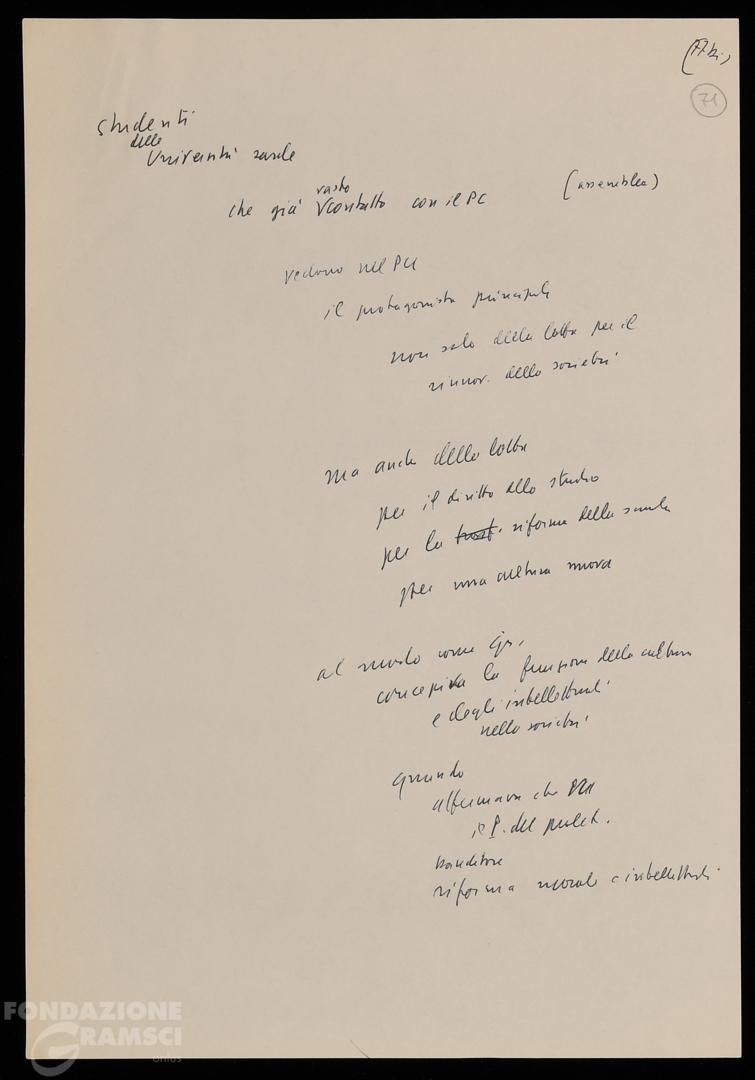 (77bis)
71
studenti
delle
Università sarde
vasto
che già V contatto con il PC (assemblea)
vedono nel PCI
il protagonista principale
non solo della lotta per il
rinnov. della società
ma anche della lotta
per il diritto allo studio
per la riforma della scuola
per una cultura nuova
al modo come Gr.
concepiva la funzione della cultura
e degli intellettuali
nella società
quando
affermava che
il P. del prolet.
banditore
riforma morale e intellettuale
FONDAZIONE
GRAMSCI
onlus